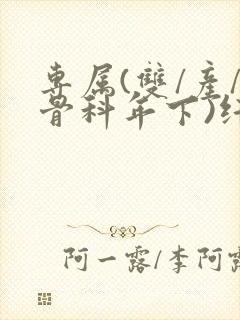 專属(雙/產/
骨科年下)
阿一露/李阿露